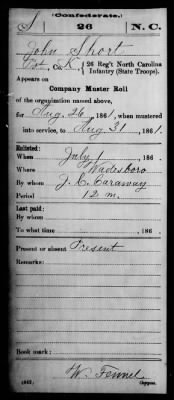 (Confederate.)
S 26 N. C.
John Short
Pvt, Co. K, 26 Reg't North Carolina
Infantry (State Troops).
Appears on
Company Muster Roll
of the organization named above,
for Aug. 26, 1861, when mustered
into service, to Aug 31, 1861.
Enlisted:
When July 1, 186 .
Where Wadesboro
By whom J. C. Caraway
Period 12 m.
Last paid:
By whom
To what time , 186 .
Present or absent Present
Remarks:
Book mark:
W. Fennel
(642) Copyist.